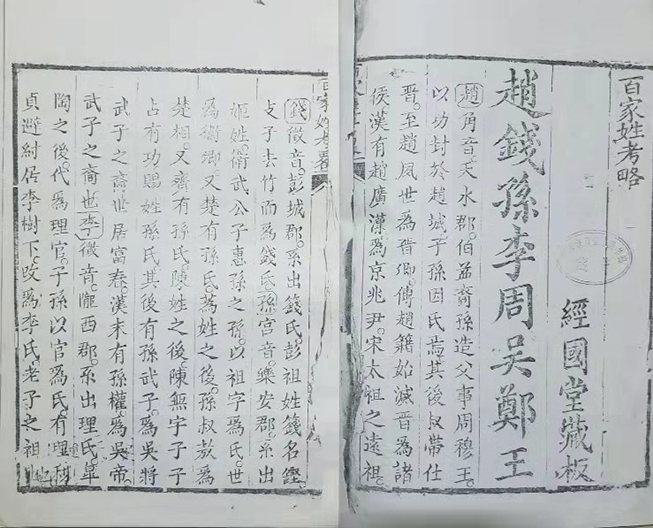 百家姓考略
經國堂藏板
趙錢孫李周吳鄭王
趙角音天水郡。伯益裔孫造父事周穆王。
以功封於趙城子孫因氏焉其後叔帶仕
晋。至趙夙世為晋卿。傳趙籍始滅晋為諸
侯漢有趙廣漢為京兆尹。宋太祖之遠祖。
百家姓考畧
錢徵音。彭城郡。系出籛氏。彭祖姓籛名鏗
支子去竹而為錢氏孫宮音樂安郡。系出
姬姓。衛武公子惠孫之孫。以祖字為氏。世
為衛卿。又楚有孫氏。蒍姓之後。孫叔敖為
楚相。又齊有孫氏。陳姓之後。陳無宇子子
占有功賜姓孫氏。其後有孫武子。為吳將
武子之裔世居富春。漢末有孫權為吳帝。
武子之裔也李徵音。隴西郡系出理氏皐
陶之後代為理官。子孫以官為氏。有理利
貞避紂居李樹下。改為李氏老子之祖也